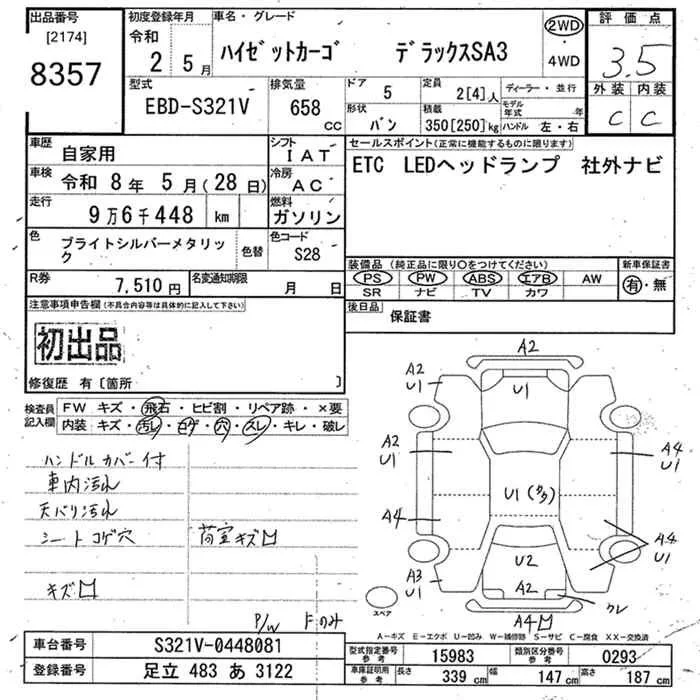 出品番号
[2174]
8357
初度登録年月
令和
2 5月
車名・グレード
ハイゼットカーゴ デラックスSA3
2WD
・
4WD
評価点
3.5
外装 内装
C C
型式
EBD-S321V
排気量
658
CC
ドア
5
定員
2[4]人
ディーラー・並行
形状
バン
積載
350[250]kg
モデル年式 年
ハンドル 左・右
車歴
自家用
シフト
IAT
車検
令和 8年 5月(28日)
冷房
AC
走行
9万6千448 km
燃料
ガソリン
色
ブライトシルバーメタリック
色替
色コード
S28
R券
7,510円
名変通知期限
月 日
セールスポイント(正常に機能するものに限ります)
ETC LEDヘッドランプ 社外ナビ
装備品 (純正品に限り〇をつけてください)
PS PW ABS エアB AW
SR ナビ TV カワ
新車保証書
有・無
後日品
保証書
注意事項申告欄(不具合内容等は具体的に記入して下さい)
初出品
修復歴 有〔箇所 〕
検査員記入欄
FW キズ・飛石・ヒビ割・リペア跡・×要
内装・キズ・汚レ・コゲ・穴・スレ・キレ・破レ
ハンドルカバー付
車内汚れ
天バリ汚れ
シートコゲ穴
荷室キズ
キズ
P/W Fのみ
A2
A2
U1
U1
A2
U1
A4
U1
U1
A4
A4
U1
A3
U1
U2
A2
クレ
A4
スペア
A-キズ E-エクボ U-凹み W-補修跡 S-サビ C-腐食 XX-交換済
車台番号
S321V-0448081
登録番号
足立 483 あ 3122
型式指定番号
参考
15983
類別区分番号
参考
0293
車庫証明用
参考
長さ
339 cm
幅
147 cm
高さ
187 cm